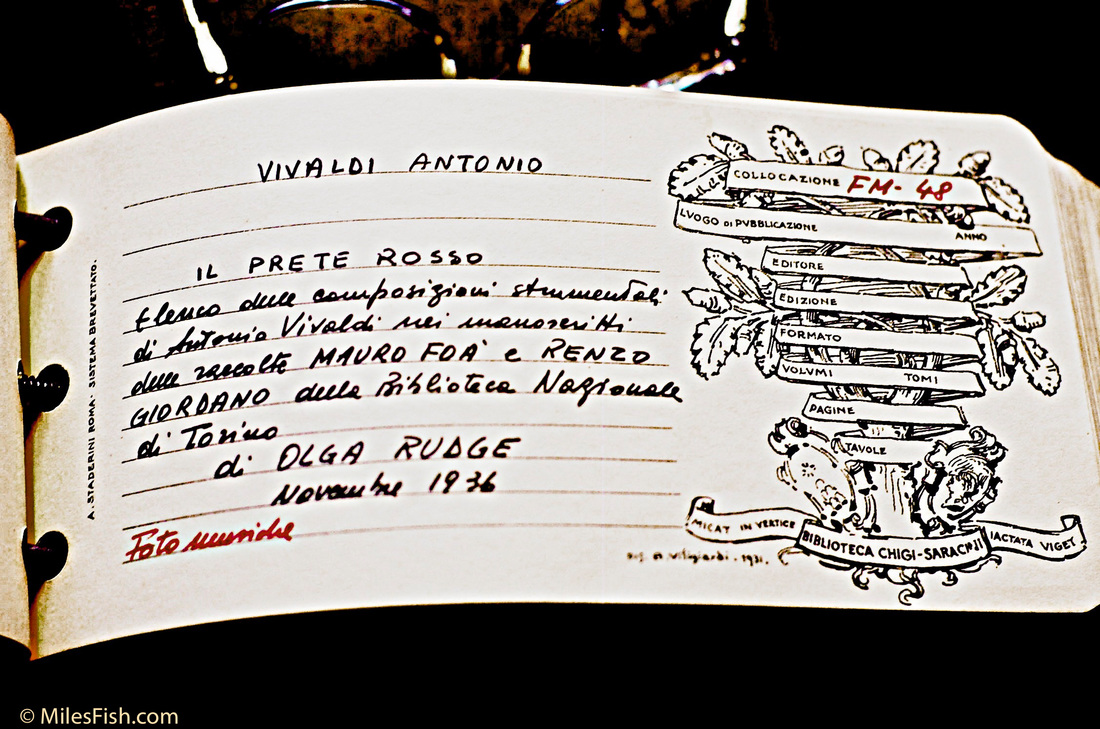 VIVALDI ANTONIO
IL PRETE ROSSO
Elenco delle composizioni strumentali
di Antonio Vivaldi nei manoscritti
delle raccolte MAURO FOA' e RENZO
GIORDANO della Biblioteca Nazionale
di Torino
di OLGA RUDGE
Novembre 1936
Foto musiche
A. STADERINI ROMA. SISTEMA BREVETTATO.
COLLOCAZIONE FM-48
LVOGO DI PVBBLICAZIONE ANNO
EDITORE
EDIZIONE
FORMATO
VOLVMI TOMI
PAGINE
TAVOLE
MICAT IN VERTICE
BIBLIOTECA CHIGI-SARACINI
IACTATA VIGET
A. Viligiardi. 1931.
© MilesFish.com